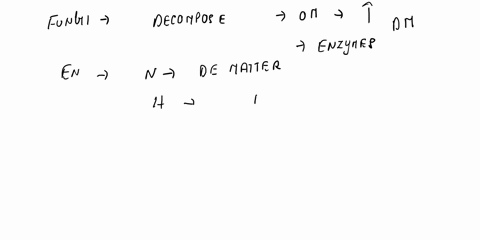 FUNGI → DECOMPOSE → OM → ↑ DM
→ ENZYMES
EN → N → DE MATTER
H → I